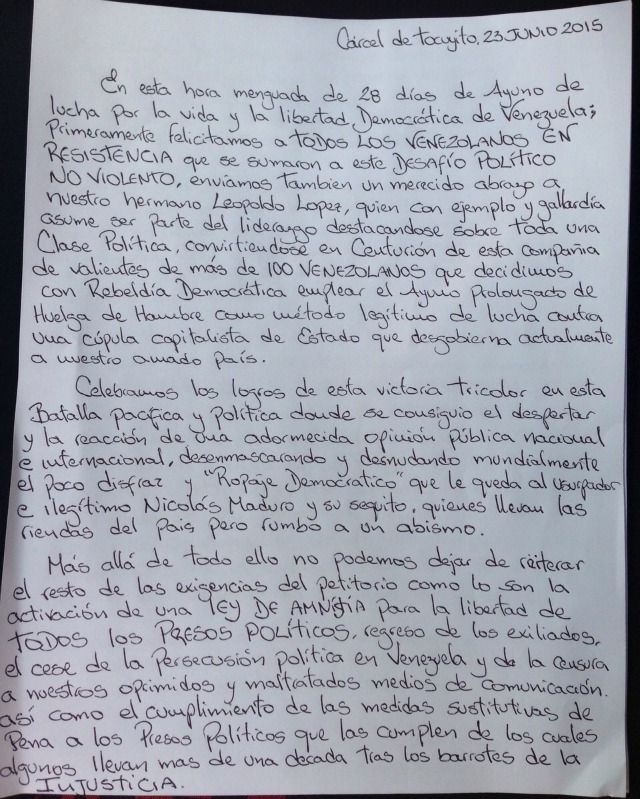 Cárcel de Tocuyito, 23 JUNIO 2015
En esta hora menguada de 28 días de Ayuno de
lucha por la vida y la libertad Democrática de Venezuela;
Primeramente felicitamos a TODOS LOS VENEZOLANOS EN
RESISTENCIA que se sumaron a este DESAFÍO POLÍTICO
NO VIOLENTO, enviamos tambien un merecido abrazo a
nuestro hermano Leopoldo Lopez, quien con ejemplo y gallardía
asume ser parte del liderazgo destacandose sobre toda una
Clase Política, convirtiendose en Centurión de esta compañia
de valientes de más de 100 VENEZOLANOS que decidimos
con Rebeldía Democrática emplear el Ayuno Prolongado de
Huelga de Hambre como método legítimo de lucha contra
una cúpula capitalista de Estado que desgobierna actualmente
a nuestro amado país.
Celebramos los logros de esta victoria tricolor en esta
Batalla pacífica y política donde se consiguio el despertar
y la reacción de una adormecida opinión pública nacional
e internacional, desenmascarando y desnudando mundialmente
el poco disfraz y "Ropaje Democratico" que le queda al usurpador
e ilegítimo Nicolás Maduro y su sequito, quienes llevan las
riendas del pais pero rumbo a un abismo.
Más allá de todo ello no podemos dejar de reiterar
el resto de las exigencias del petitorio como lo son la
activación de una LEY DE AMNISTIA para la libertad de
TODOS los PRESOS POLÍTICOS, regreso de los exiliados,
el cese de la Persecusión política en Venezuela y de la censura
a nuestros oprimidos y maltratados medios de comunicación.
así como el cumplimiento de las medidas sustitutivas de
Pena a los Presos Políticos que las cumplen de los cuales
algunos llevan mas de una decada tras los barrotes de la
INJUSTICIA.